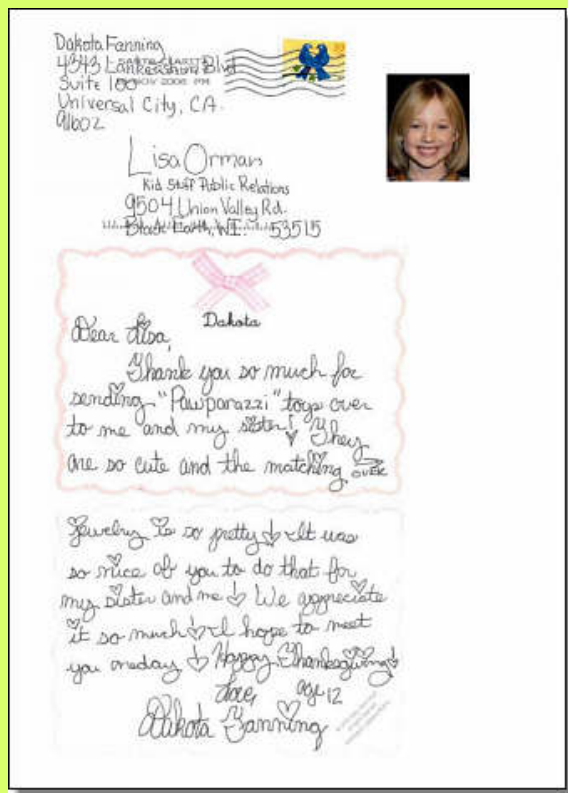 Dakota Fanning
4343 Lankershim Blvd
Suite 100
Universal City, CA.
91602
NOV 2006 PM
Lisa Orman
Kid Stuff Public Relations
9504 Union Valley Rd.
Black Earth, WI. 53515
Dakota
Dear Lisa,
Thank you so much for
sending "Pawparazzi" toys over
to me and my sister! They
are so cute and the matching
OVER
Jewelry is so pretty! It was
so nice of you to do that for
my sister and me! We appreciate
it so much! I hope to meet
you oneday! Happy Thanksgiving!
Love, age 12
Dakota Fanning